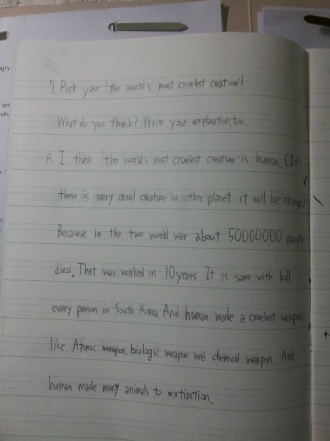 7. Pick your 'the world's most cruelest creature'!
What do you think? Write your explanation too.
A. I think 'the world's most cruelest creature' is human. (If
there is very cruel creature in other planet, it will be change)
Because in the two world war about 50000000 people
died. That was worked in 10 years It is same with kill
every person in South Korea. And human made a cruelest weapon
like Atomic weapon, biologic weapon and chemical weapon. And
human made many animals to extinction.